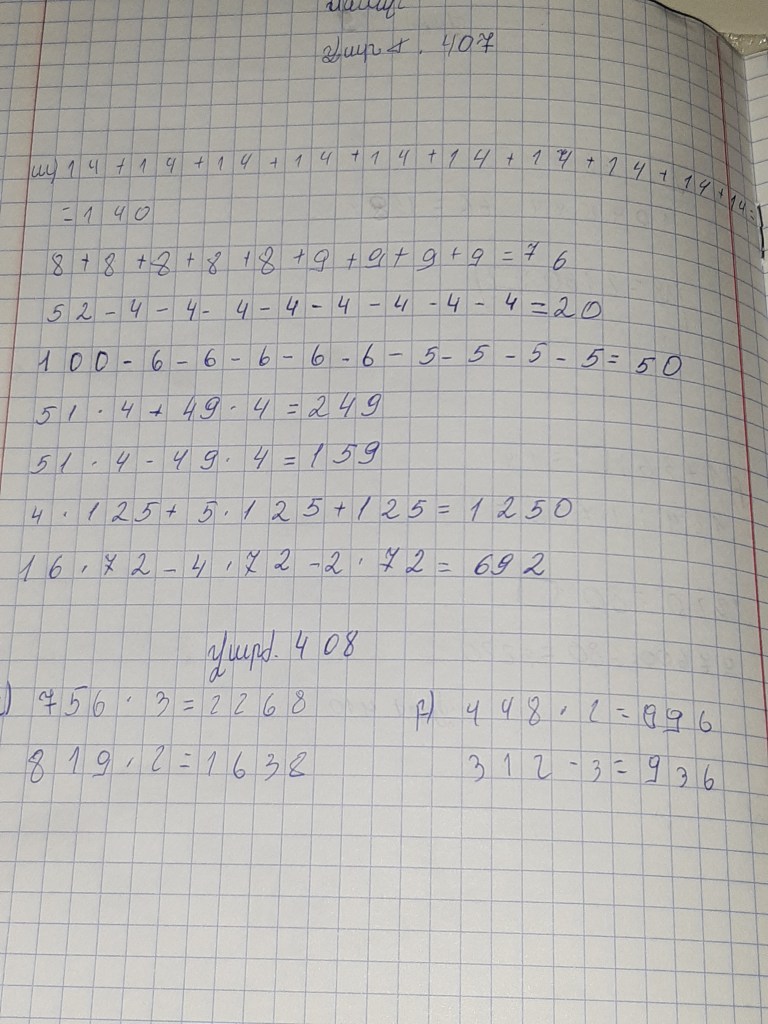 407
14+14+14+14+14+14+14+14+14+14=
=140
8+8+8+8+8+9+9+9+9=76
52-4-4-4-4-4-4-4-4=20
100-6-6-6-6-6-5-5-5-5=50
51·4+49·4=249
51·4-49·4=159
4·125+5·125+125=1250
16·72-4·72-2·72=692
408
756·3=2268
448·2=996
819·2=1638
312·3=936